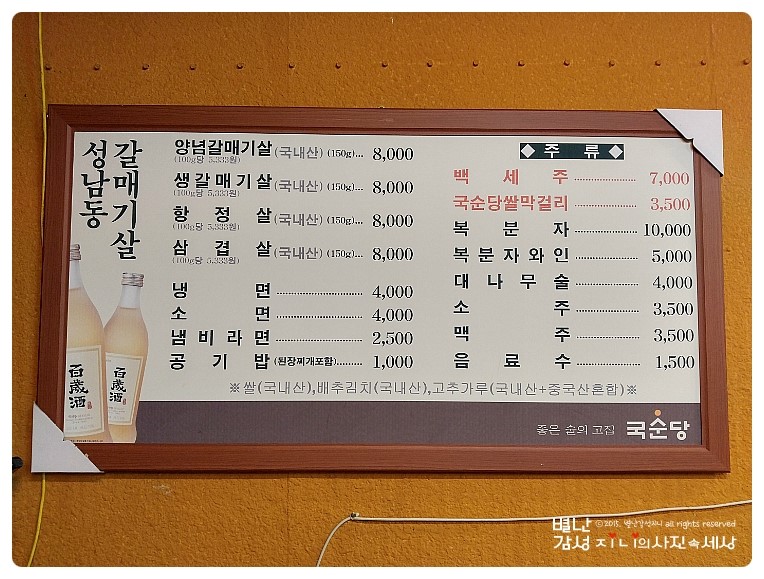 성남동
갈매기살
양념갈매기살 (국내산) (150g)... 8,000
(100g당 5,333원)
생갈매기살 (국내산) (150g)... 8,000
(100g당 5,333원)
항정살 (국내산) (150g)... 8,000
(100g당 5,333원)
삼겹살 (국내산) (150g)... 8,000
(100g당 5,333원)
냉면 4,000
소면 4,000
냄비라면 2,500
공기밥 (된장찌개포함) 1,000
◆주류◆
백세주 7,000
국순당쌀막걸리 3,500
복분자 10,000
복분자와인 5,000
대나무술 4,000
소주 3,500
맥주 3,500
음료수 1,500
※쌀(국내산),배추김치(국내산),고추가루(국내산+중국산혼합)※
百歲酒
百歲酒
좋은 술의 고집 국순당
별난 ⓒ2015. 별난감성지니 all rights reserved
감성 지니의사진속세상